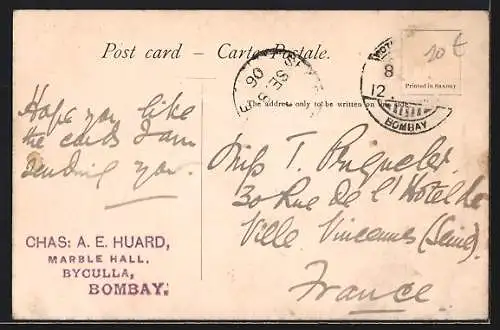 Post card – Carte Postale.
The address only to be written on
Printed in SAXONY
10 t
SE
06
8
12
BOMBAY
Hope you like
the cards I am
sending you.
CHAS: A. E. HUARD,
MARBLE HALL,
BYCULLA,
BOMBAY.
Miss T.
30 Rue de l'Hotel de
Ville Vincennes (Seine)
France